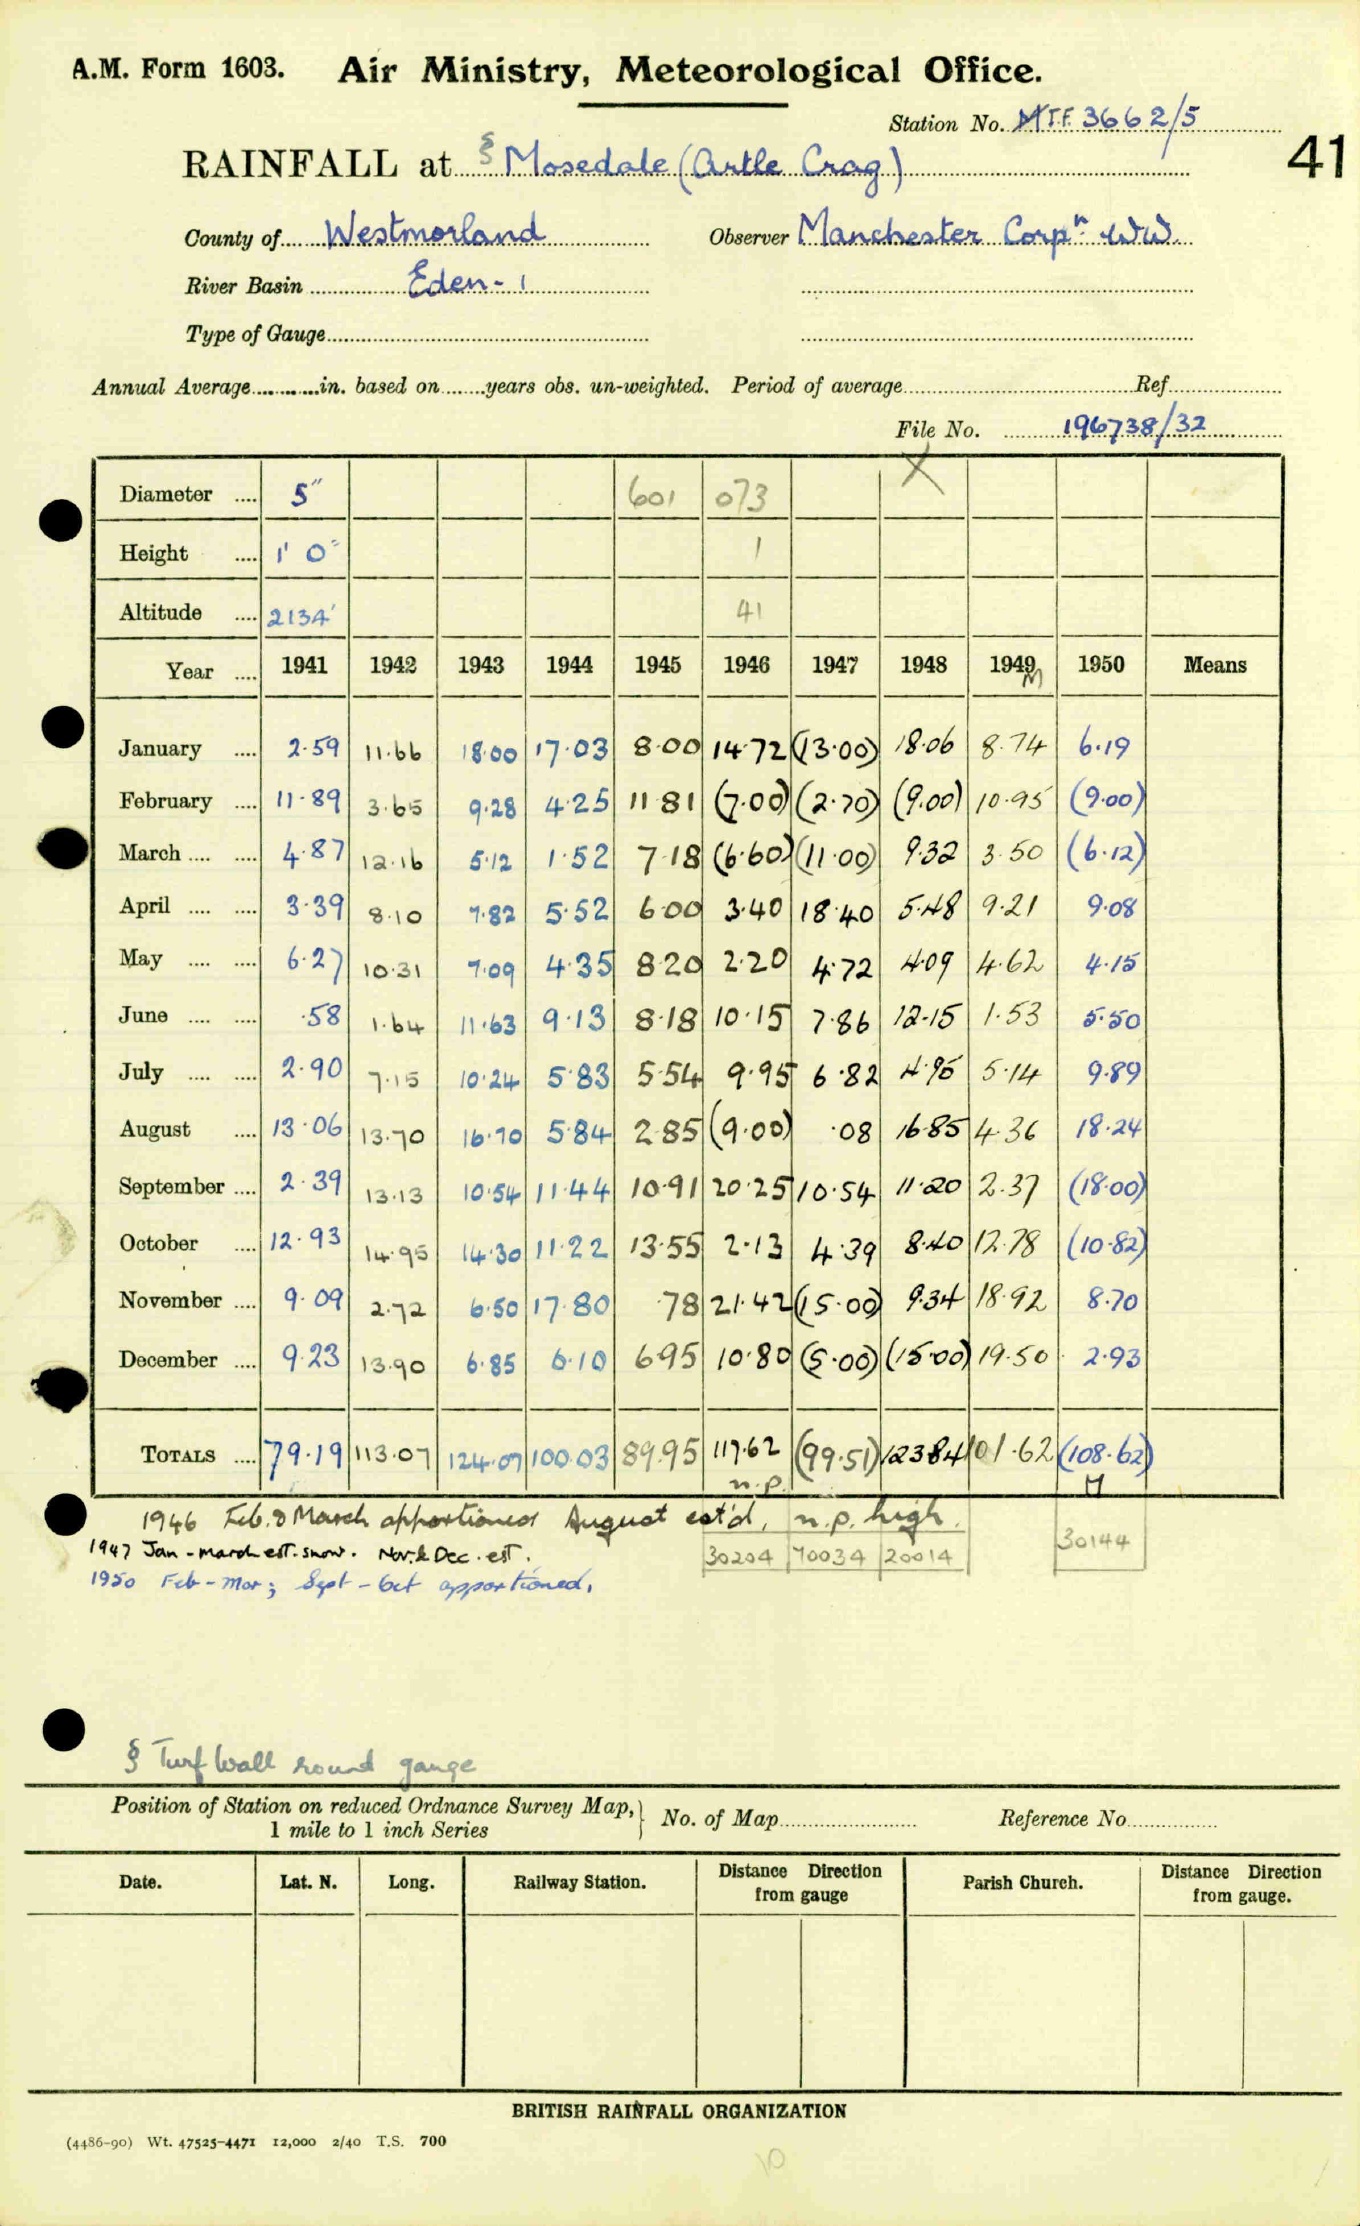 A.M. Form 1603. Air Ministry, Meteorological Office.
Station No. MTF 3662/5
41
RAINFALL at § Mosedale (Artle Crag)
County of Westmorland Observer Manchester Corpn. WW.
River Basin Eden - 1
Type of Gauge
Annual Average in. based on years obs. un-weighted. Period of average Ref
File No. 196738/32
X
Diameter 5" 601 073
Height 1' 0" 1
Altitude 2134' 41
Year 1941 1942 1943 1944 1945 1946 1947 1948 1949 M 1950 Means
January 2.59 11.66 18.00 17.03 8.00 14.72 (13.00) 18.06 8.74 6.19
February 11.89 3.65 9.28 4.25 11.81 (7.00) (2.70) (9.00) 10.95 (9.00)
March 4.87 12.16 5.12 1.52 7.18 (6.60) (11.00) 9.32 3.50 (6.12)
April 3.39 8.10 7.82 5.52 6.00 3.40 18.40 5.48 9.21 9.08
May 6.27 10.31 7.09 4.35 8.20 2.20 4.72 4.09 4.62 4.15
June .58 1.64 11.63 9.13 8.18 10.15 7.86 12.15 1.53 5.50
July 2.90 7.15 10.24 5.83 5.54 9.95 6.82 4.95 5.14 9.89
August 13.06 13.70 16.70 5.84 2.85 (9.00) .08 16.85 4.36 18.24
September 2.39 13.13 10.54 11.44 10.91 20.25 10.54 11.20 2.37 (18.00)
October 12.93 14.95 14.30 11.22 13.55 2.13 4.39 8.40 12.78 (10.82)
November 9.09 2.72 6.50 17.80 .78 21.42 (15.00) 9.34 18.92 8.70
December 9.23 13.90 6.85 6.10 6.95 10.80 (5.00) (15.00) 19.50 2.93
TOTALS 79.19 113.07 124.07 100.03 89.95 117.62 (99.51) 123.84 101.62 (108.62)
n.p. M
1946 Feb. & March apportioned August est'd, n.p. high.
1947 Jan - March est. snow. Nov. & Dec. est.
30204 70034 20014 30144
1950 Feb - Mar; Sept - Oct apportioned.
§ Turf wall round gauge
Position of Station on reduced Ordnance Survey Map, 1 mile to 1 inch Series } No. of Map Reference No.
Date. Lat. N. Long. Railway Station. Distance Direction from gauge Parish Church. Distance Direction from gauge.
BRITISH RAINFALL ORGANIZATION
(4486-90) Wt. 47525-4471 12,000 2/40 T.S. 700